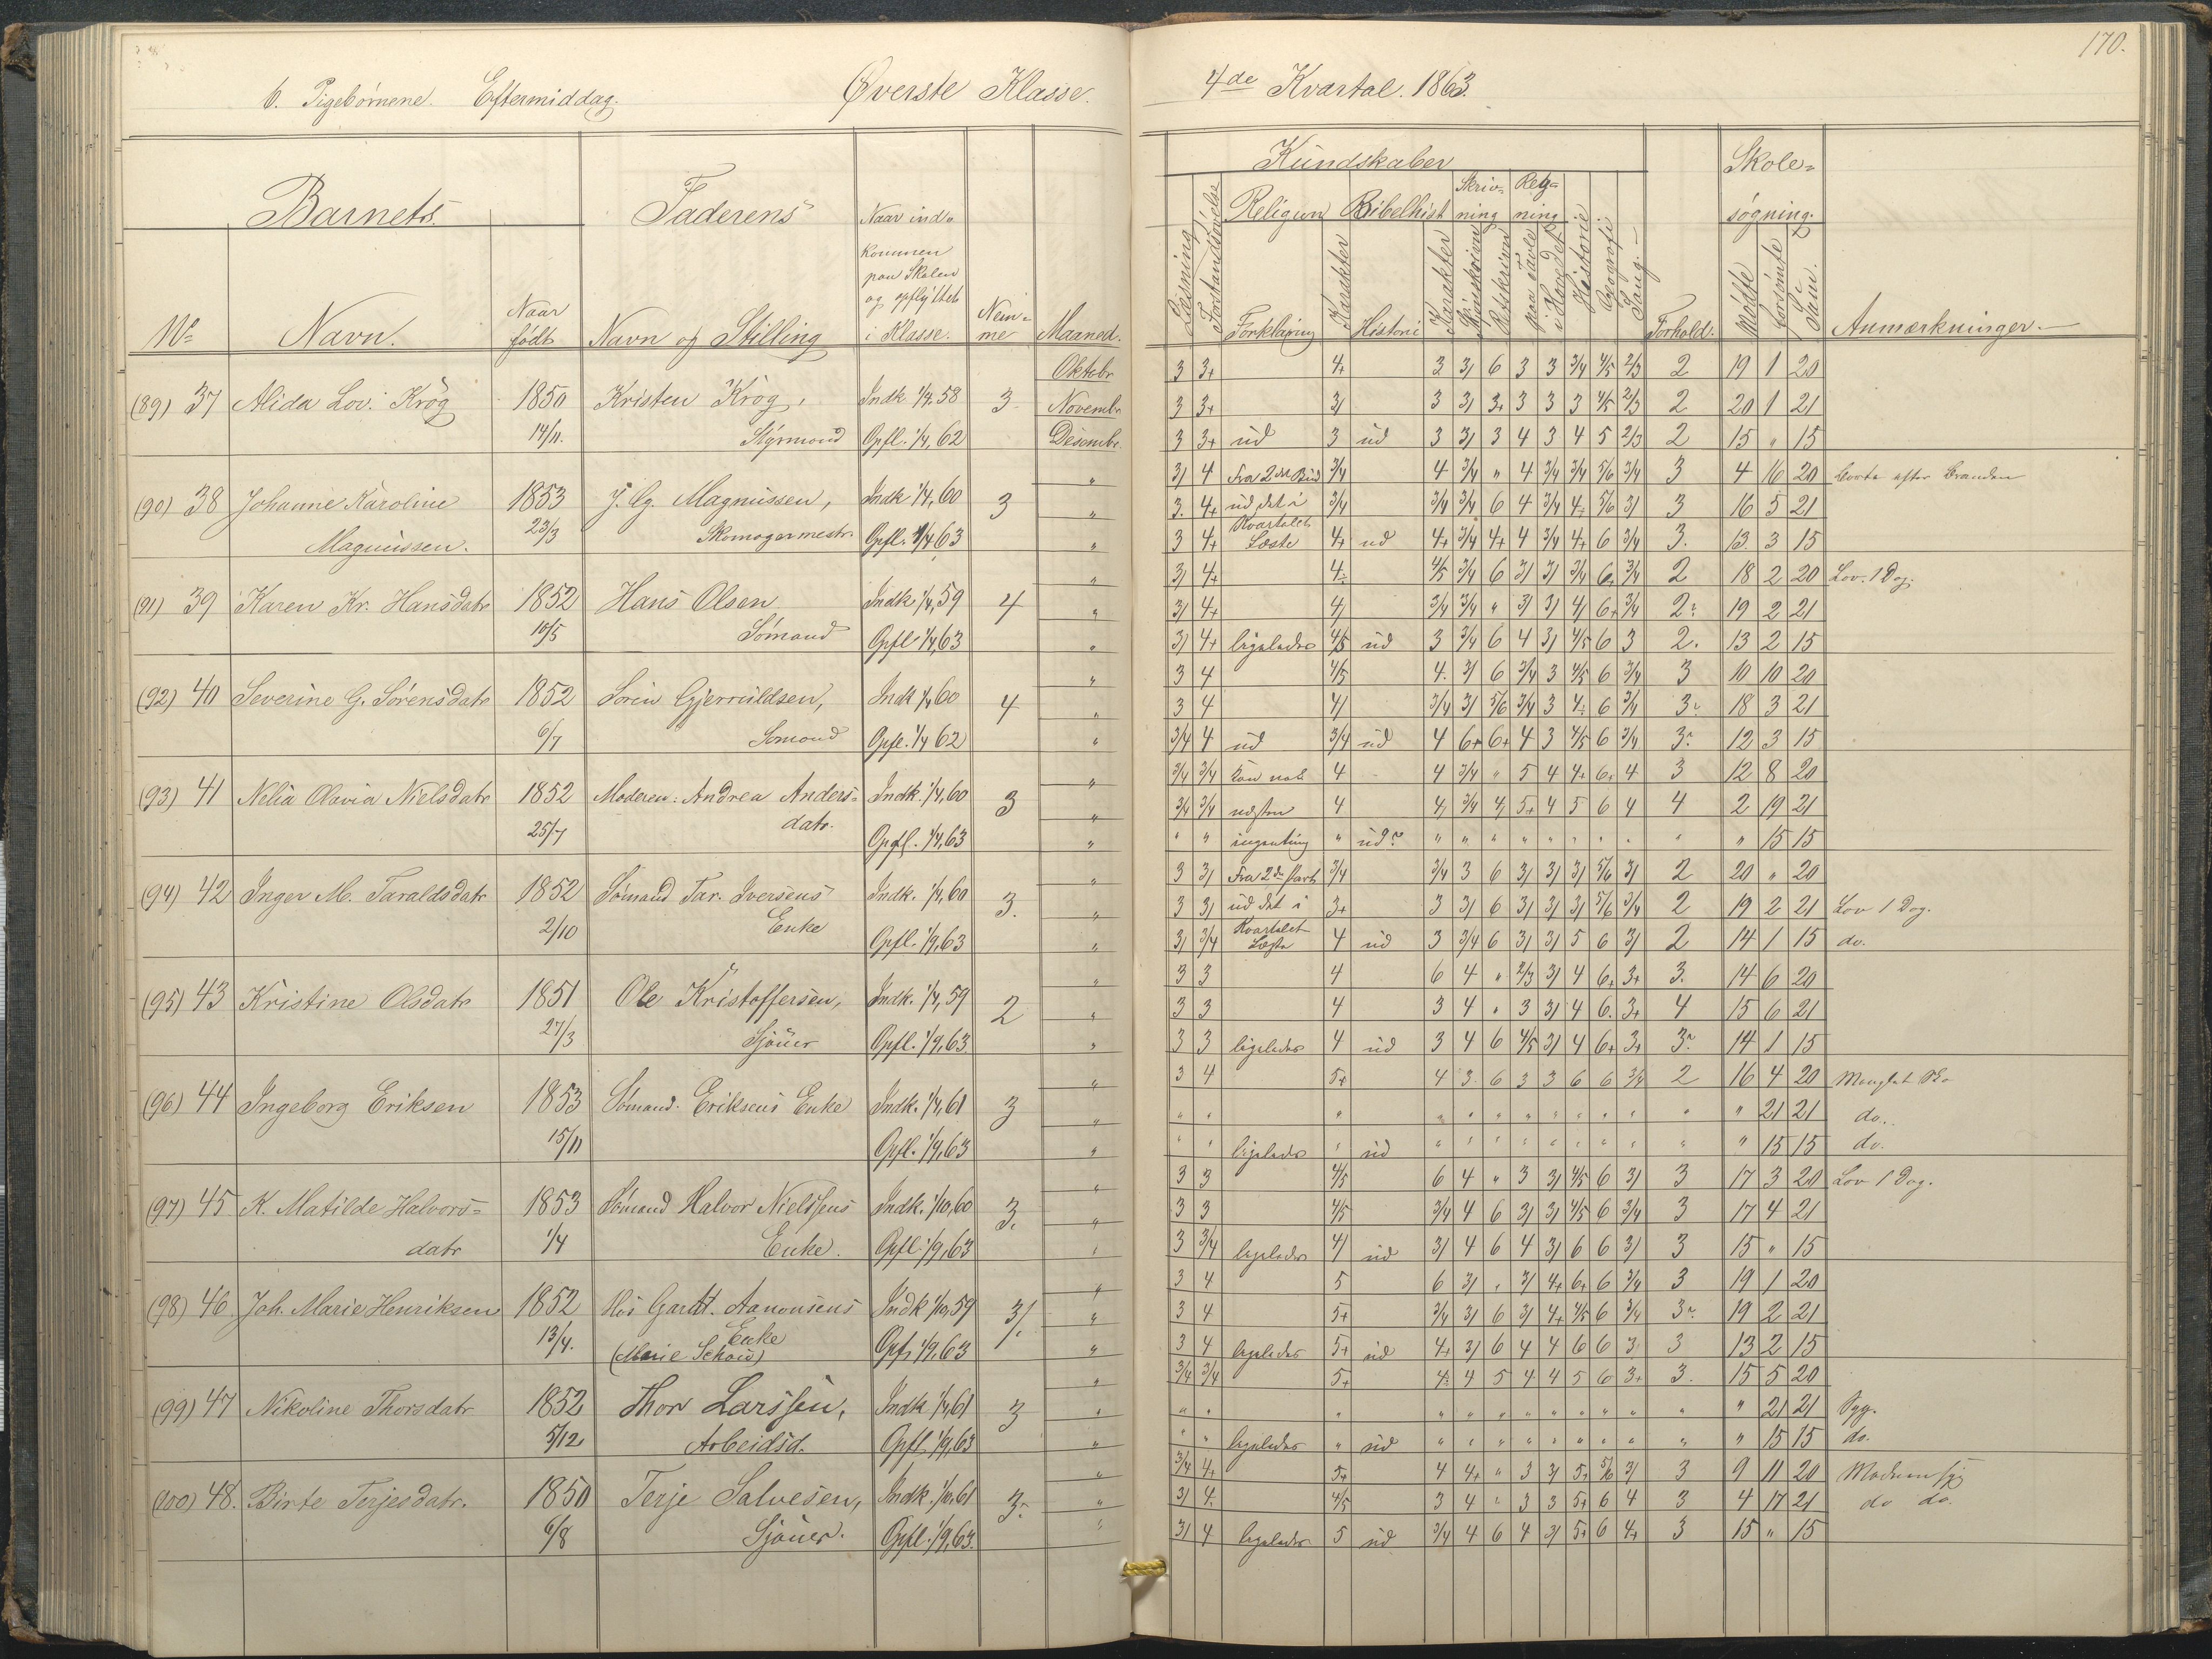 170.
6. Pigebørnene. Eftermiddag. Øverste Klasse. 4de Kvartal. 1863.
Barnets Faderens Naar ind- Kundskaber Skole-
kommen Religion Bibelhist Skriv- Reg- søgning.
paa Skolen ning ning
og opflyttet
No Navn. Naar født Navn og Stilling i Klasse. Nem- me Maaned. Læsning Forstandsøvelse Forklaring Karakter Historie Karakter Skjønskrivn Retskrivn paa Tavle i Hovedet Historie Geografi Sang. Forhold. Mødte Forsømte Sum. Anmærkninger.
Oktobr 3 3+ 4+ 3 3/ 6 3 3 3/4 4/5 2/3 2 19 1 20
(89) 37 Alida Lov. Krøg 1850 Kristen Krøg, Indk 1/4 58 3 Novembr. 3 3+ 3/ 3 3/ 3+ 3 3 3 4/5 2/3 2 20 1 21
14/11. Styrmand Opfl. 1/4, 62 Desembr. 3 3+ ud 3 ud 3 3/ 3 4 3 4 5 2/3 2 15 " 15
" 3/ 4 Fra 2det Bud 3/4 4 3/4 " 4 3/4 3/4 5/6 3/4 3 4 16 20 Borte efter Branden
(90) 38 Johanne Karoline 1853 J. Cg. Magnussen, Indk 1/4, 60 3 " 3. 4+ ud det i 3/4 3/4 3/4 6 4 3/4 4 5/6 3/ 3 16 5 21
Magnussen. 23/3 Skomagermestr. Opfl. 1/4 63 " 3 4+ Kvartalet Læste 4+ ud 4+ 3/4 4+ 4 3/4 4+ 6 3/4 3. 13. 3 15
" 3/ 4+ 4 4/5 3/4 6 3/ 3/ 3/4 6+ 3/4 2 18 2 20 Lov. 1 Dag.
(91) 39 Karen Kr. Hansdatr 1852 Hans Olsen Indk 1/4, 59 4 " 3/ 4+ 4/ 3/4 3/4 " 3/ 3/ 4/ 6+ 3/4 2 19 2 21
10/5 Sømand Opfl 1/4, 63 " 3/ 4+ ligeledes 4/5 ud 3 3/4 6 4 3/ 4/5 6 3 2. 13 2 15
" 3 4 4/5 4. 3/ 6 3/4 3 4/5 6 3/4 3 10 10 20
(92) 40 Severine G. Sørensdatr 1852 Søren Gjerruldsen, Indk 1/4 60 4 " 3 4 4/ 3/4 3/ 5/6 3/4 3 4 6 3/4 3 18 3 21
6/7 Sømand Opfl. 1/4 62 " 3/4 4 ud 3/4 ud 4 6+ 6+ 4 3 4/5 6 3/4 3 12 3 15
" 3/4 3/4 4 4 3/4 " 5 4 4+ 6+ 4 3 12 8 20
(93) 41 Nelia Olavia Nielsdatr 1852 Moderen: Andrea Anders- Indk. 1/4, 60 3 " 3/4 3/4 næsten 4 4/ 3/4 4/ 5+ 4 5 6 4 4 2 19 21
25/7 datr. Opfl. 1/4, 63 " " " ingenting " ud? " " " " " " " " " " 15 15
" 3 3/ Fra 2den Part 3/4 3/4 3 6 3/ 3/ 3/ 5/6 3/ 2 20 " 20
(94) 42 Inger M. Taraldsdatr 1852 Sømand Tar. Iversens Indk. 1/4, 60 3. " 3 3/ ud det i 3+ 3 3/ 6 3/ 3/ 3/ 5/6 3/4 2 19 2 21 Lov 1 Dag.
2/10 Enke Opfl. 1/9, 63 " 3/ 3/4 Kvartalet Læste 4 ud 3 3/4 6 3/ 3/ 5 6 3/ 2 14 1 15 do.
" 3 3 4 6 4 " 2/3 3/ 4 6+ 3+ 3. 14 6 20
(95) 43 Kristine Olsdatr 1851 Ole Kristoffersen, Indk. 1/4, 59 2 " 3 3 4 3 4 " 3 3/ 4 6. 3+ 4 15 6 21
27/3 Sjøuer Opfl. 1/9, 63. " 3 3 ligeledes 4 ud 3 4 6 4/5 3/ 4 6+ 3+ 3 14 1 15
" 3 4 5+ 4 3 6 3 3 6 6 3/4 2 16 4 20
(96) 44 Ingeborg Eriksen 1853 Sømand. Eriksens Enke Indk. 1/4, 61 3 " " " " " " " " " " " " " " 21 21 do.
15/11 Opfl. 1/9, 63 " " " ligeledes " ud " " " " " " " " " " 15 15 do.
" 3 3 4/5 6 4 " 3 3/ 4/5 6 3/ 3 17 3 20 Lov 1 Dag.
(97) 45 K. Matilde Halvors- 1853 Sømand Halvor Nielssens Indk. 1/10, 60 3. " 3 3 4/5 3/4 4 6 3/ 3/ 4/5 6 3/4 3 17 4 21
datr 1/4 Enke. Opfl. 1/9, 63 " 3 3/4 ligeledes 4/ ud 3/ 4 6 4 3/ 6 6 3/ 3 15 " 15
" 3 4 5 6 3/ " 3/ 4+ 6+ 6 3/4 3 19 1 20
(98) 46 Joh. Marie Henriksen 1852 Hos Aanonsens Indk 1/10, 59 3/. " 3 4 5+ 3/4 3/ 6 3/ 4+ 4/5 6 3/4 3 19 2 21
13/4. Enke (Marie Schow) Opf. 1/9, 63 " 3 4 ligeledes 5+ ud 4+ 3/ 6 4 4 6 6 3 3 13 2 15
" 3/4 3/4 5+ 4 4 5 4 4 5 6 3+ 3. 15 5 20
(99) 47 Nikoline Thorsdatr 1852 Thor Larssen, Indk 1/4, 61 3 " " " " " " " " " " " " " " 21 21 Syg.
5/12 Arbeidsd. Opfl. 1/9, 63 " " " ligeledes " ud " " " " " " " " " " 15 15 do.
" 3/4 4+ 5+ 4 4+ " 3 3/ 5+ 5/6 3/ 3 9 11 20 Moderen syg
(100) 48. Birte Terjesdatr. 1850 Terje Salvesen, Indk. 1/10, 61 3. " 3/ 4. 4/5 3 4 " 3 3 5+ 6 4 3 4 17 21 do do.
6/8 Sjøuer. Opfl. 1/9, 63. " 3/ 4 ligeledes 5 ud 3/4 4 6 4 3/ 5+ 6 4+ 3 15 " 15